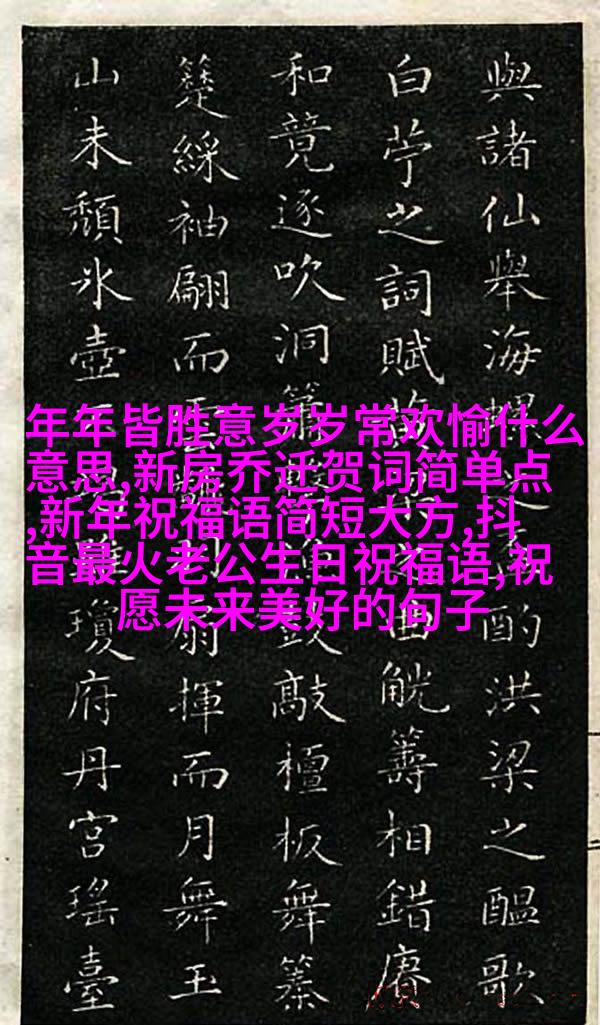 年年皆胜意岁岁常欢愉什么
意思,新房乔迁贺词简单点
,新年祝福语简短大方,抖
音最火老公生日祝福语,祝
愿未来美好的句子
與諸仙舉海螺之酌洪梁之醞歌
白苧之詞賦曲觥籌相錯賡
和竟逐吹洞簫鼓敲檀板舞
綵袖翩而雲扇揮而月舞玉
山未頹冰壺瓊府丹宮瑤臺